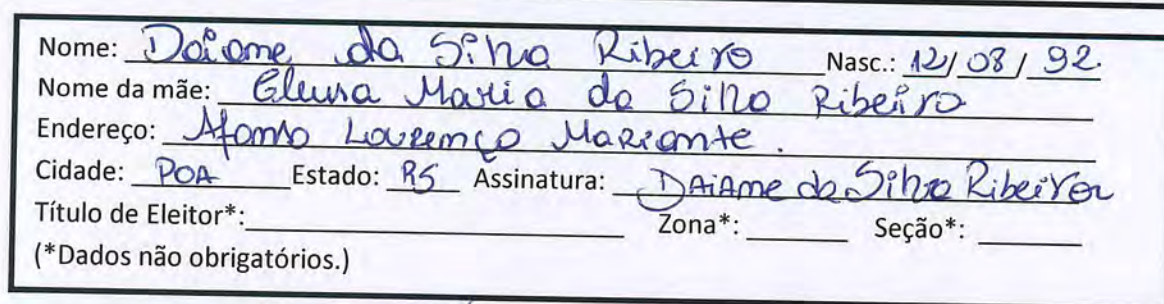 Nome: Daiane da Silva Ribeiro Nasc.: 12/08/92.
Nome da mãe: Eleusa Maria da Silva Ribeiro
Endereço: Afonso Lourenço Mariante.
Cidade: POA Estado: RS Assinatura: DAiAne da Silva Ribeiro
Título de Eleitor*: Zona*: Seção*:
(*Dados não obrigatórios.)